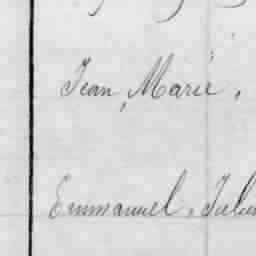 Jean, Marie,
Emmanuel, Julien